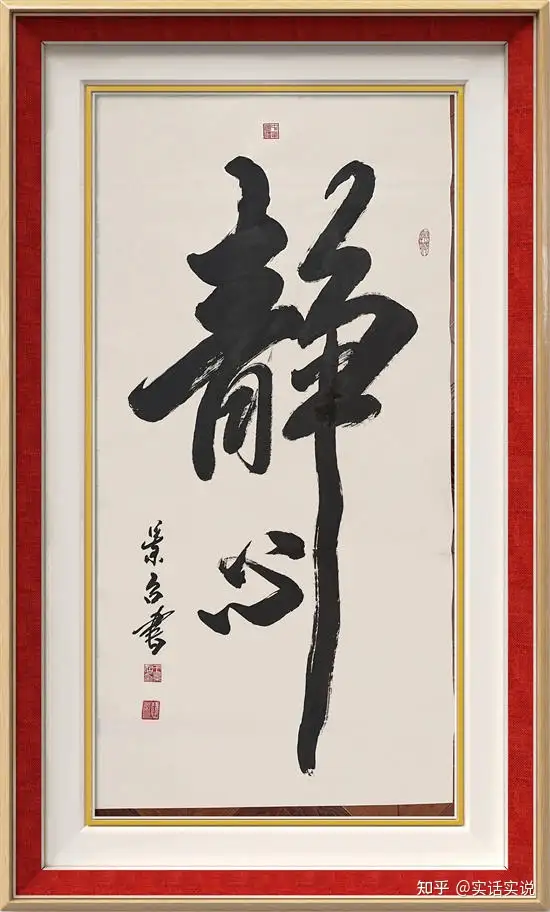 静心
景台书
知乎 @实话实说